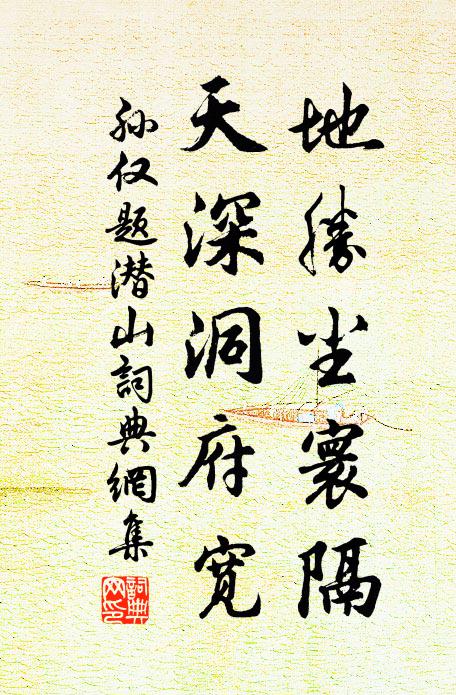 地勝尘寰隔
天深洞府寬
孙仅题潜山詞典網集
詞典网印